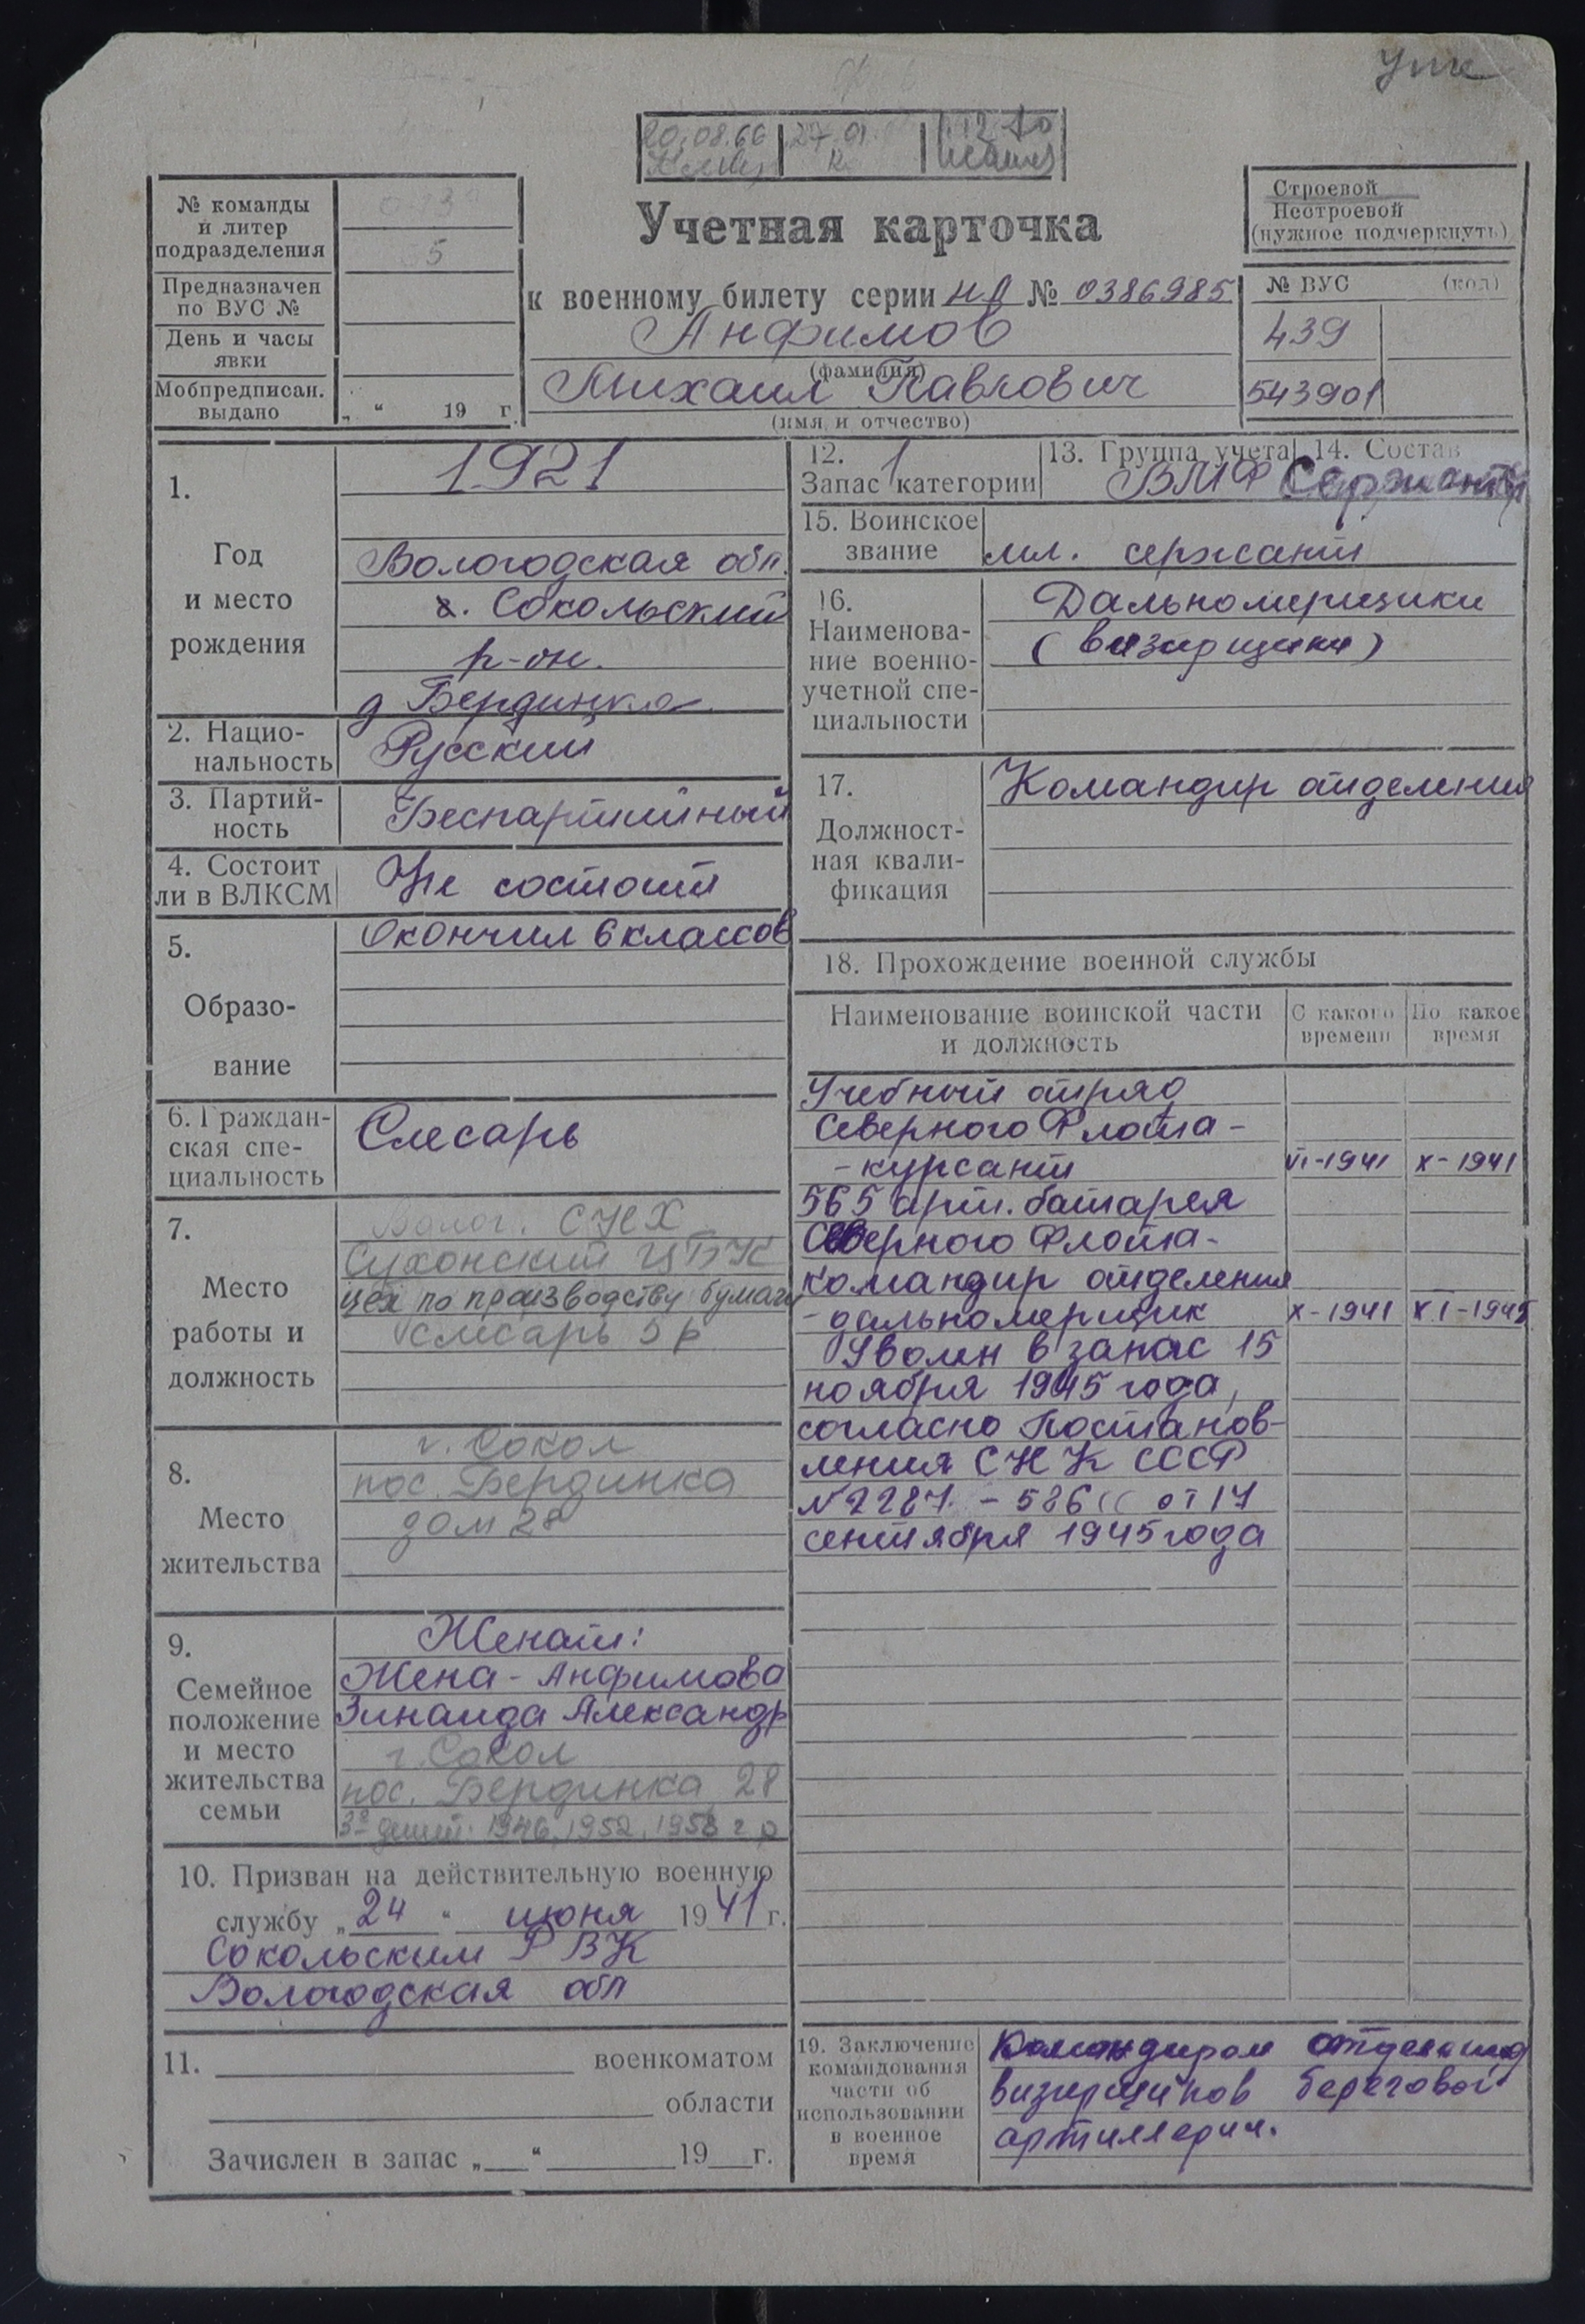 20.08.66
27.01
№ команды
и литер
подразделения
5
Предназначен
по ВУС №
День и часы
явки
Мобпредписан.
выдано
„ “ 19 г.
Учетная карточка
к военному билету серии НЛ № 0386985
Анфимов
(фамилия)
Михаил Павлович
(имя и отчество)
Строевой
Нестроевой
(нужное подчеркнуть)
№ ВУС (код)
439
543901
1.
Год
и место
рождения
1921
Вологодская обл.
г. Сокольский
р-он.
д Бердинка
2. Нацио-
нальность
Русский
3. Партий-
ность
Беспартийный
4. Состоит
ли в ВЛКСМ
Не состоит
5.
Образо-
вание
Окончил 6 классов
6. Граждан-
ская спе-
циальность
Слесарь
7.
Место
работы и
должность
Волог. СНХ
Сухонский ЦБК
цех по производству бумаги
слесарь 5 р
8.
Место
жительства
г. Сокол
пос. Бердинка
дом 28
9.
Семейное
положение
и место
жительства
семьи
Женат:
Жена - Анфимова
Зинаида Александр
г. Сокол
пос. Бердинка 28
3е детей: 1946, 1952, 1958 г р
10. Призван на действительную военную
службу „24“ июня 1941 г.
Сокольским РВК
Вологодская обл
11. военкоматом
области
Зачислен в запас „ “ 19 г.
12. 1
Запас категории
13. Группа учета
ВМФ
14. Состав
Сержанты
15. Воинское
звание
мл. сержант
16.
Наименова-
ние военно-
учетной спе-
циальности
Дальномерщики
(визирщики)
17.
Должност-
ная квали-
фикация
Командир отделения
18. Прохождение военной службы
Наименование воинской части
и должность
С какого
времени
По какое
время
Учебный отряд
Северного Флота -
- курсант VI-1941 X-1941
565 арт. батарея
Северного Флота -
командир отделения
- дальномерщик X-1941 XI-1945
Уволен в запас 15
ноября 1945 года,
согласно Постанов-
ления СНК СССР
№ 2287 - 586сс от 17
сентября 1945 года
19. Заключение
командования
части об
использовании
в военное
время
Командиром отделения
визирщиков береговой
артиллерии.